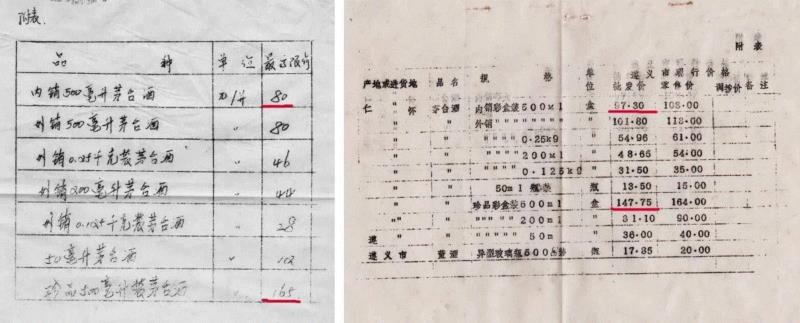 附表.
品 种 单位 最高限价
内销500毫升茅台酒 元/瓶 80
外销500毫升茅台酒 〃 80
外销0.25千克装茅台酒 〃 46
外销200毫升茅台酒 〃 44
外销0.125千克装茅台酒 〃 28
50毫升茅台酒 〃
珍品500毫升装茅台酒 〃 165
附 表
产地或进货地 品名 规 格 单位 遵义批发价 市现行价格零售价 调拨价 备注
仁 〃 怀 茅台酒 内销彩盒装500ml 盒 97.30 108.00
〃 〃 外销 〃〃〃 〃 101.80 113.00
〃 〃 〃 0.25kg 〃 54.96 61.00
〃 〃 〃〃 200ml 〃 48.65 54.00
〃 〃 〃〃 0.125kg 〃 31.50 35.00
〃 〃 50ml 瓶装 瓶 13.50 15.00
〃 〃 珍品彩盒装500ml 盒 147.75 164.00
〃 〃 〃〃〃 200ml 〃 81.10 90.00
〃 〃〃 50m 〃 36.00 40.00
遵义市 董酒 异型玻璃瓶500 瓶 17.85 20.00